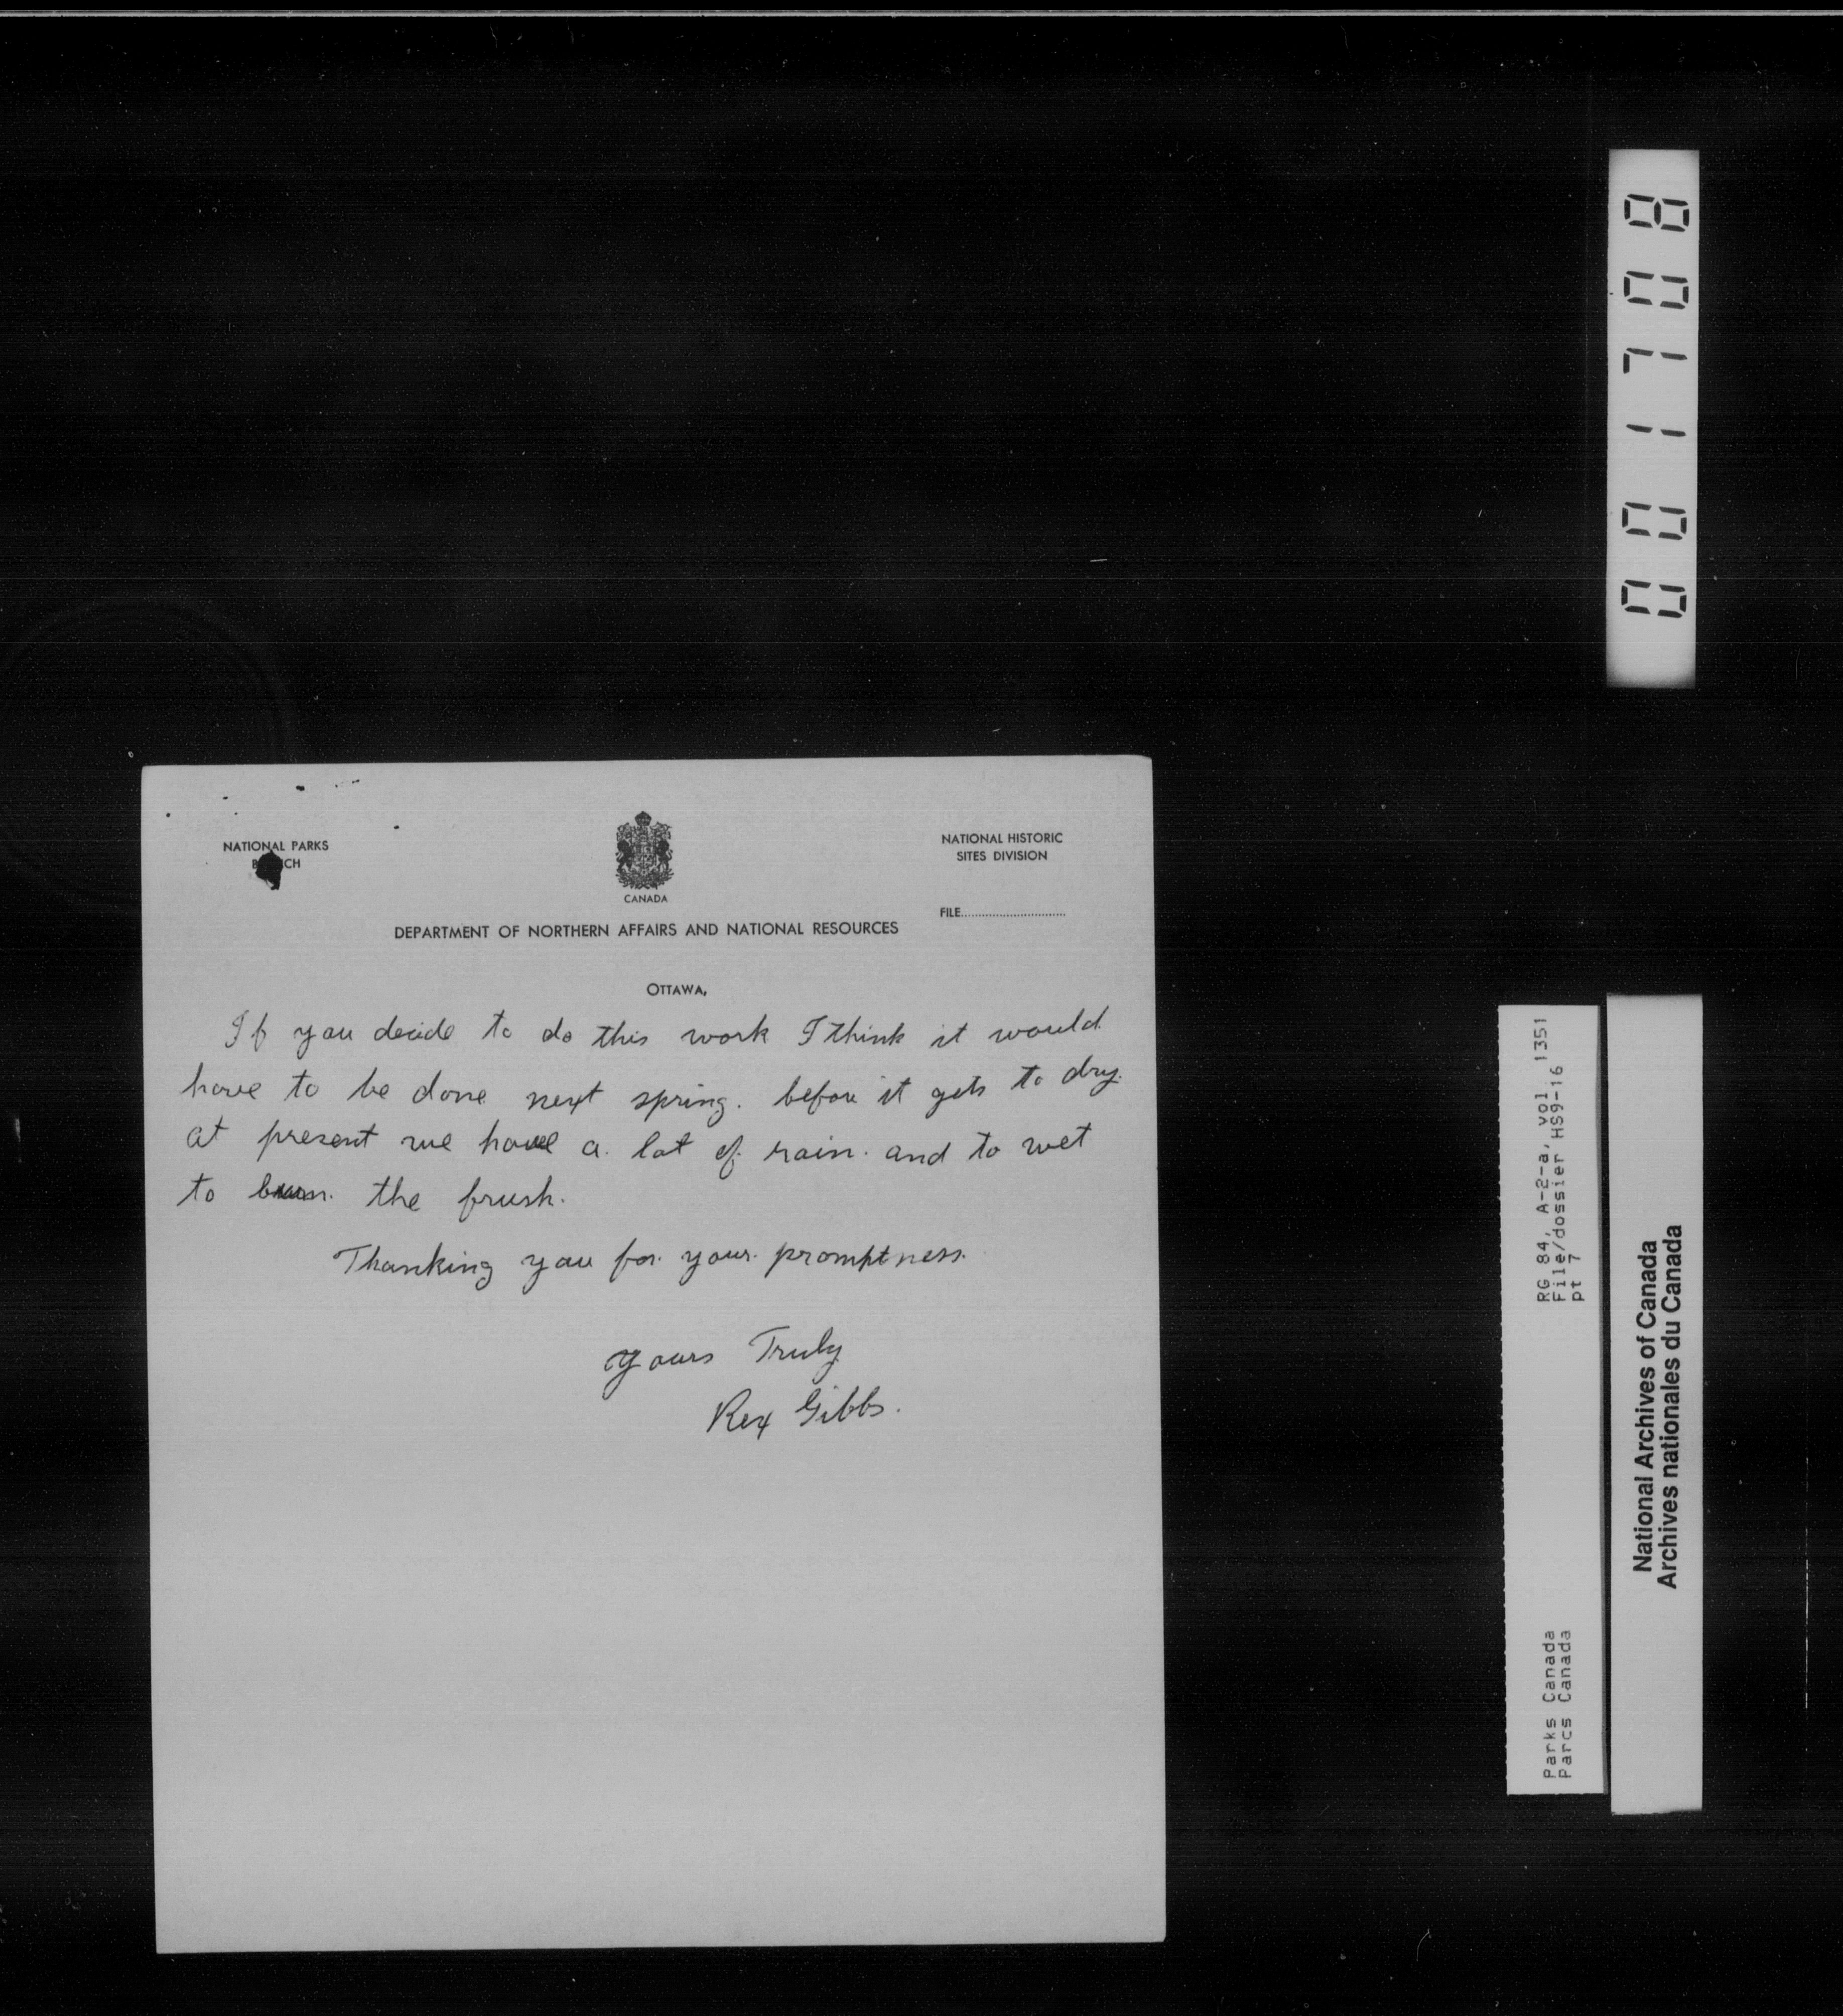 NATIONAL PARKS
NATIONAL HISTORIC
SITES DIVISION
CANADA
FILE..............................
DEPARTMENT OF NORTHERN AFFAIRS AND NATIONAL RESOURCES
OTTAWA,
If you decide to do this work I think it would
have to be done next spring. before it gets to dry.
at present we have a lot of rain. and to wet
to burn. the brush.
Thanking you for your promptness.
Yours Truly
Rex Gibbs.
001708
RG 84, A-2-a, vol. 1351
File/dossier HS9-16
pt 7
Parks Canada
Parcs Canada
National Archives of Canada
Archives nationales du Canada